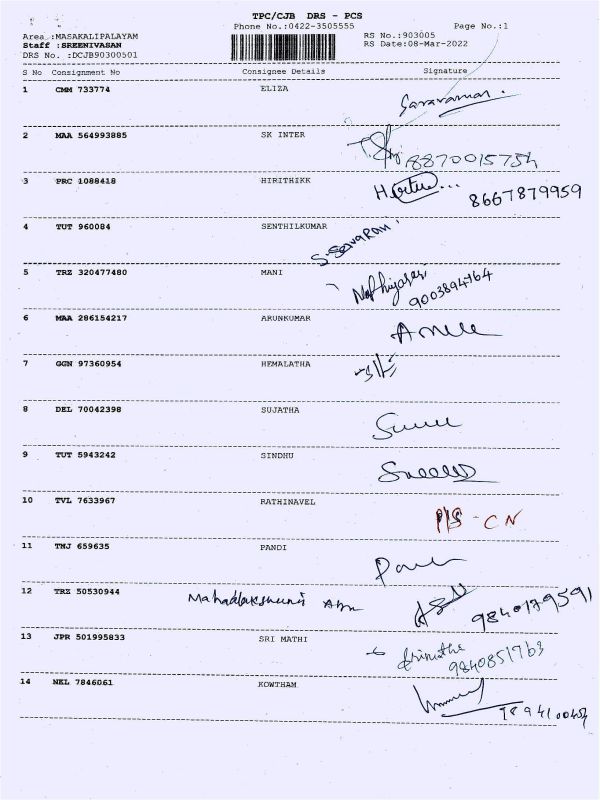 TPC/CJB DRS - PCS
Phone No.:0422-3505555 Page No.:1
Area :MASAKALIPALAYAM RS No.:903005
Staff :SREENIVASAN RS Date:08-Mar-2022
DRS No. :DCJB90300501
S No Consignment No Consignee Details Signature
1 CMM 733774 ELIZA Saravanan.
2 MAA 564993885 SK INTER 8870015754
3 PRC 1088418 HIRITHIKK 8667879959
4 TUT 960084 SENTHILKUMAR
5 TRZ 320477480 MANI 9003894764
6 MAA 286154217 ARUNKUMAR
7 GGN 97360954 HEMALATHA
8 DEL 70042398 SUJATHA
9 TUT 5943242 SINDHU
10 TVL 7633967 RATHINAVEL - CN
11 TMJ 659635 PANDI
12 TRZ 50530944 9840179591
13 JPR 501995833 SRI MATHI 9840851763
14 NKL 7846061 KOWTHAM